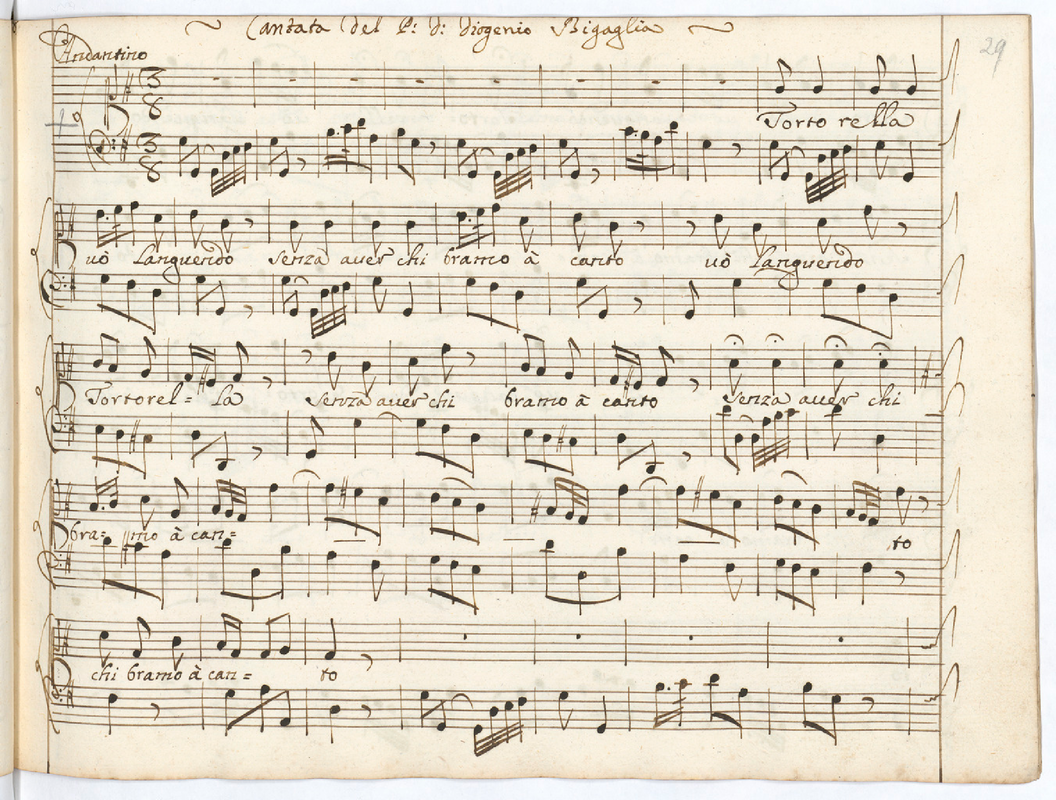 Cantata del P: d: diogenio Bigaglia
29
Andantino
3 8
Torto rella
3 8
uò Languendo senza auer chi bramo à canto uò Languendo
Tortorel= la senza auer chi bramo à canto senza auer chi
bra= mo à can= to
chi bramo à can= to